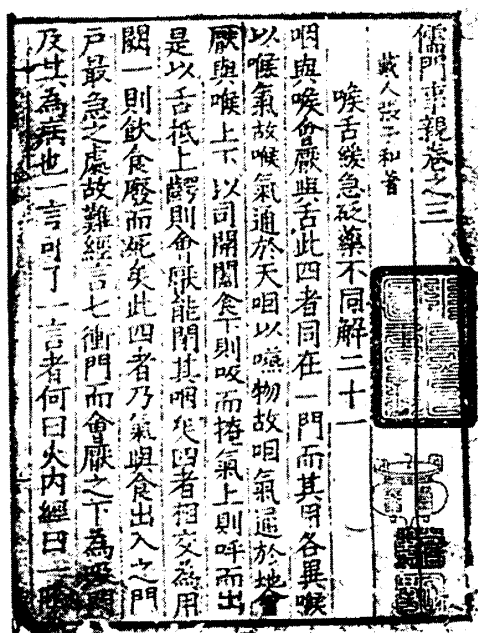 儒門事親卷之三
戴人張子和著
喉舌緩急砭藥不同解二十一
咽與喉會厭與舌此四者同在一門而其用各異喉
以候氣故喉氣通於天咽以嚥物故咽氣通於地會
厭與喉上下以司開闔食下則吸而掩氣上則呼而出
是以舌抵上齶則會厭能閉其咽矣四者相交為用
闕一則飲食廢而死矣此四者乃氣與食出入之門
戶最急之處故難經言七衝門而會厭之下為吸門
及其為病也一言可了一言者何曰火內經曰一陰